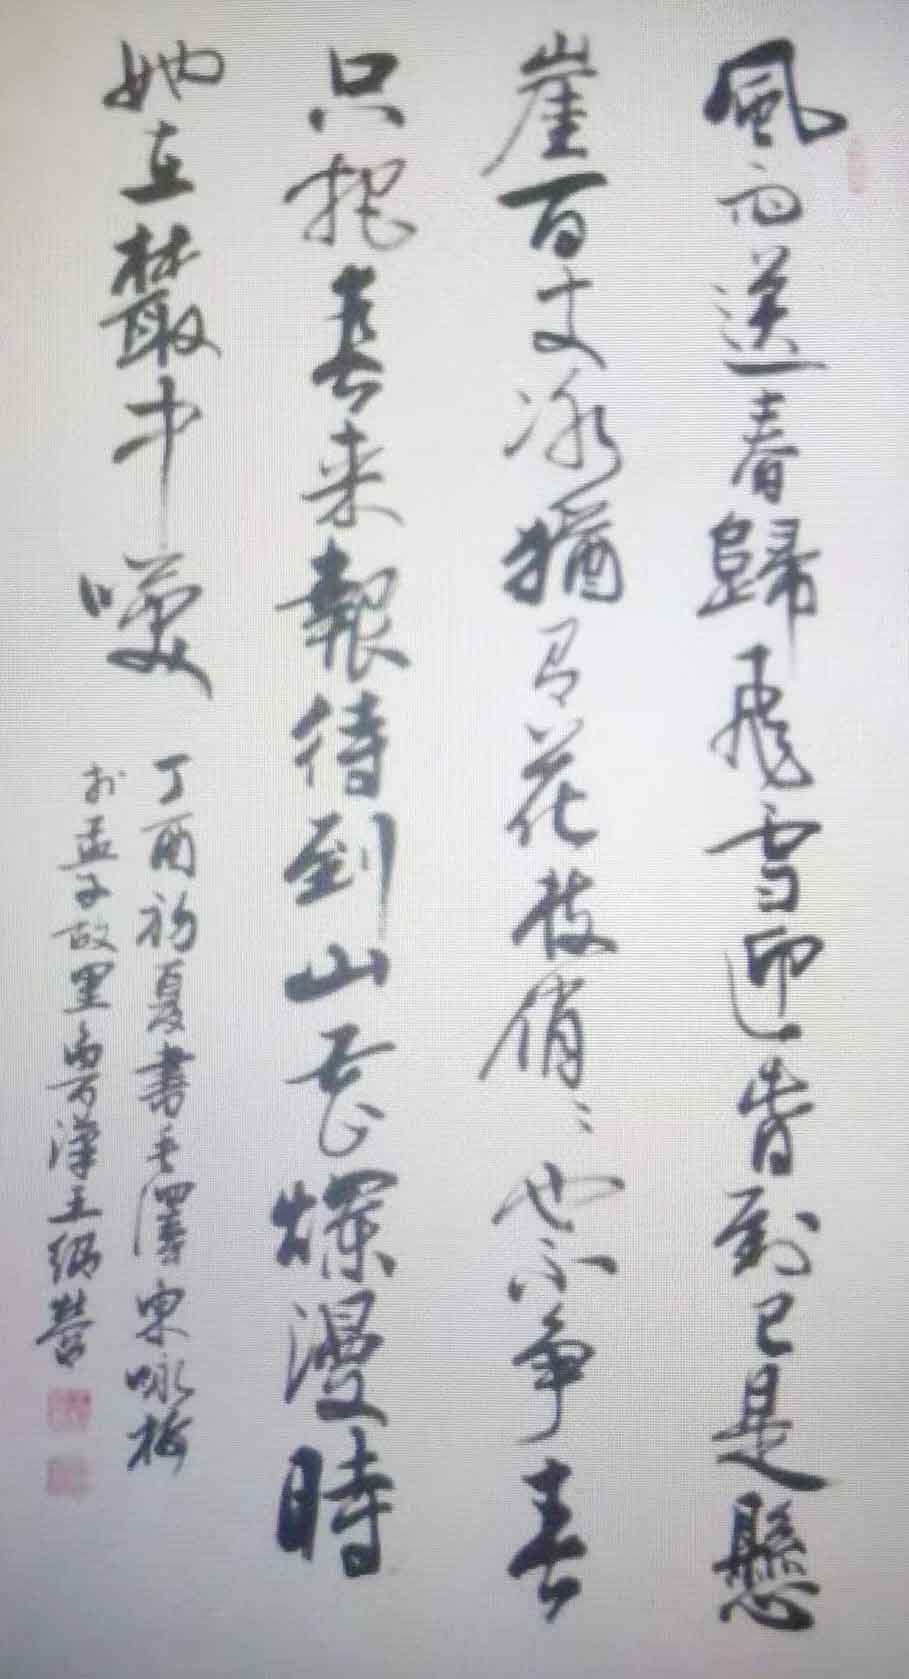 風雨送春歸飛雪迎春到已是懸
崖百丈冰猶有花枝俏〻也不争春
只把春来報待到山花爛漫時
她在叢中笑
丁酉初夏書毛澤東咏梅
於孟子故里漢王